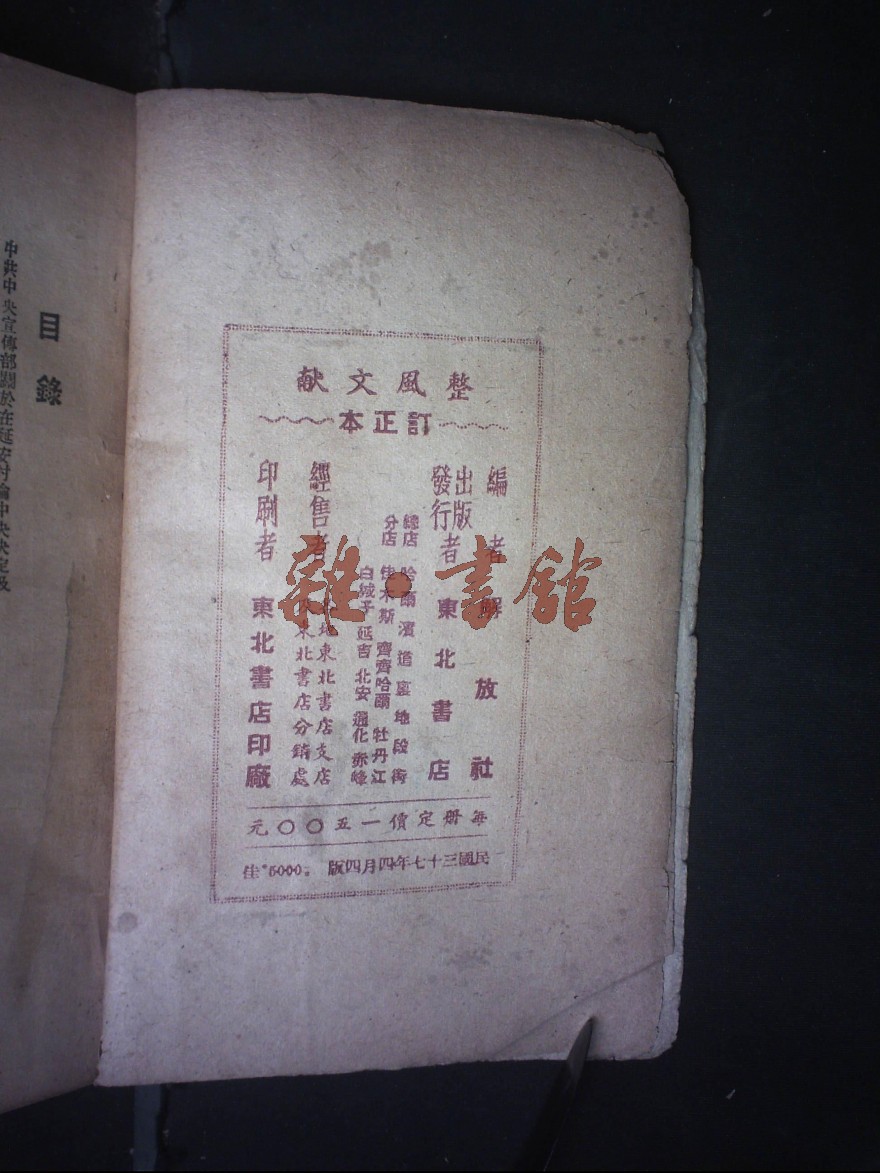 整風文献
訂正本
編者 解放社
出版
發行者 東北書店
總店 哈爾濱道裏地段街
分店 佳木斯 齊齊哈爾 牡丹江
白城子 延吉 北安 通化 赤峰
經售者 地東北書店支店
東北書店分銷處
印刷者 東北書店印廠
每册定價一五〇〇元
民國三十七年四月四版 。5000。佳
目錄
中共中央宣傳部關於在延安討論中央決定及
雜·書館